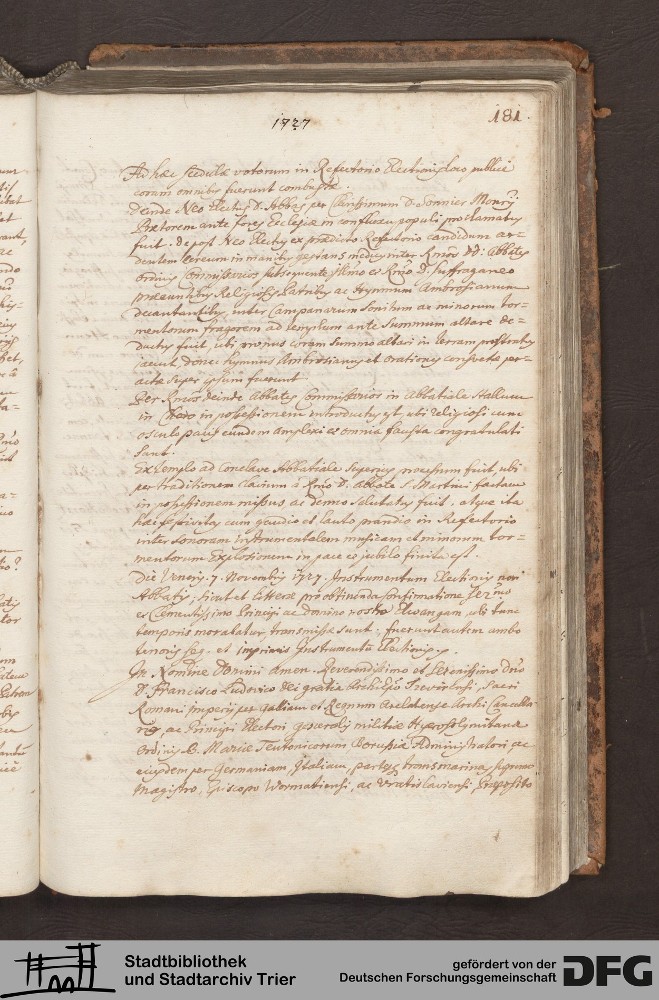 1727
181.
Ad hæc scedulæ votorum in Refectorio Electionis loco publicè
coram omnibus fuerunt combustæ.
Deinde Neo Electus D. Abbas per Clarissimum D. Sonnier
Prætorem ante fores Ecclesiæ in confluxu populi proclamatus
fuit. depost Neo Electus ex prædicto Refectorio candidum ar=
dentem cereum in manibus gestans medius inter Rmos DD. Abbates
ordinis Commissarios subsequente Illmo et Rmo D. Suffraganeo
præeuntibus Religiosis Patribus ac Hymnum Ambrosianum
decantantibus, inter Campanarum Sonitum ac minorum tor=
mentorum fragorem ad templum ante Summum altare de=
ductus fuit, ubi pronus coram summo altari in terram prostratus
jacuit, donec hymnus Ambrosianus et orationes consuetæ per=
actæ super ipsum fuerunt
Per Rmos deinde Abbates Commissarios in Abbatiale Stallum
in Choro in possessionem introductus est, ubi religiosi cum
osculo pacis eundem amplexi et omnia fausta congratulati
sunt.
Ex templo ad Conclave Abbatiale superius processum fuit, ubi
per traditionem clavium à Rmo D. Abbate S. Martini factam
in possessionem missus, ac demo salutatus fuit, atque ita
hæc festivitas cum gaudio et lauto prandio in Refectorio
inter sonoram instrumentalem musicam et minorum tor=
mentorum explosionem in pace et jubilo finita est.
Die Veneris 7. Novembris 1727. Instrumentum Electionis novi
Abbatis, sicut et litteræ pro obtinenda confirmatione Sermo
et Clementissimo Principi ac domino nostro Elwangam, ubi tunc
temporis morabatur, transmissæ sunt, fuerunt autem ambo
tenoris seq. et imprimis Instrumentum Electionis.
In Nomine Domini Amen. Reverendissimo et Serenissimo Dno
D. Francisco Ludovico dei gratia Archiepo Trevirensi, Sacri
Romani Imperii per Galliam et Regnum Arelatense Archi Cancella
rio, ac Principi Electori generalis militiæ Hyerosolymitanæ
Ordinis B. Mariæ Teutonicorum Borussiæ Administratori ac
ejusdem per Germaniam, Italiam, partesque transmarinas supremo
Magistro, Episcopo Wormatiensi, ac Vratislaviensi, Præposito
Stadtbibliothek
und Stadtarchiv Trier
gefördert von der
Deutschen Forschungsgemeinschaft
DFG